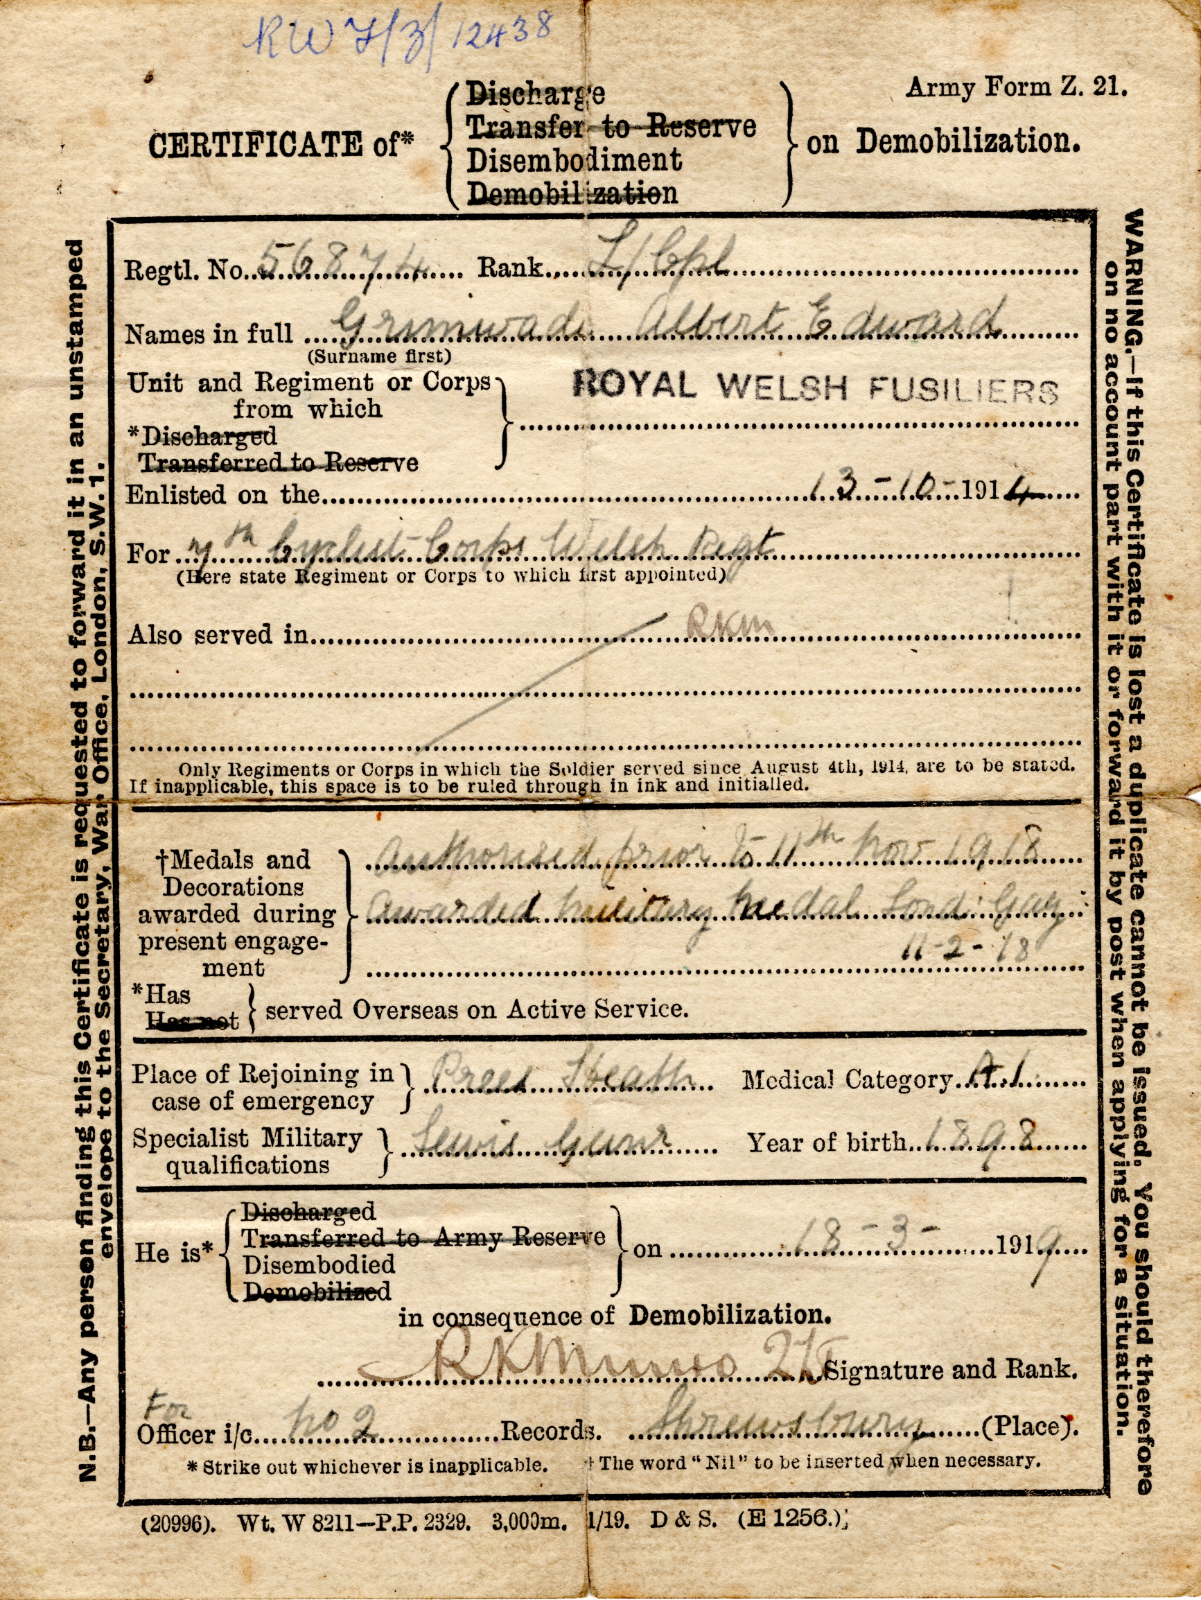 RW 7/3/12438
Army Form Z. 21.
CERTIFICATE of* { Discharge
Transfer to Reserve
Disembodiment
Demobilization } on Demobilization.
Regtl. No. 56874 Rank L/Cpl
Names in full Grimwade Albert Edward
(Surname first)
Unit and Regiment or Corps
from which
*Discharged
Transferred to Reserve } ROYAL WELSH FUSILIERS
Enlisted on the 13-10-1914
For 7th Cyclist Corps Welsh Regt
(Here state Regiment or Corps to which first appointed)
Also served in RKM
Only Regiments or Corps in which the Soldier served since August 4th, 1914, are to be stated.
If inapplicable, this space is to be ruled through in ink and initialled.
†Medals and
Decorations
awarded during
present engage-
ment }
Authorised prior to 11th Nov 1918
Awarded Military Medal Lond: Gaz:
11-2-18
*Has
Has not } served Overseas on Active Service.
Place of Rejoining in
case of emergency } Prees Heath Medical Category A1
Specialist Military
qualifications } Lewis Gunr Year of birth 1898
He is* { Discharged
Transferred to Army Reserve
Disembodied
Demobilized } on 18-3-1919
in consequence of Demobilization.
RKMunro 2Lt Signature and Rank.
For
Officer i/c No 2 Records. Shrewsbury (Place).
* Strike out whichever is inapplicable. † The word "Nil" to be inserted when necessary.
(20996). Wt. W 8211—P.P. 2329. 3,000m. 1/19. D & S. (E 1256.)
N.B.—Any person finding this Certificate is requested to forward it in an unstamped
envelope to the Secretary, War Office, London, S.W. 1.
WARNING.—If this Certificate is lost a duplicate cannot be issued. You should therefore
on no account part with it or forward it by post when applying for a situation.